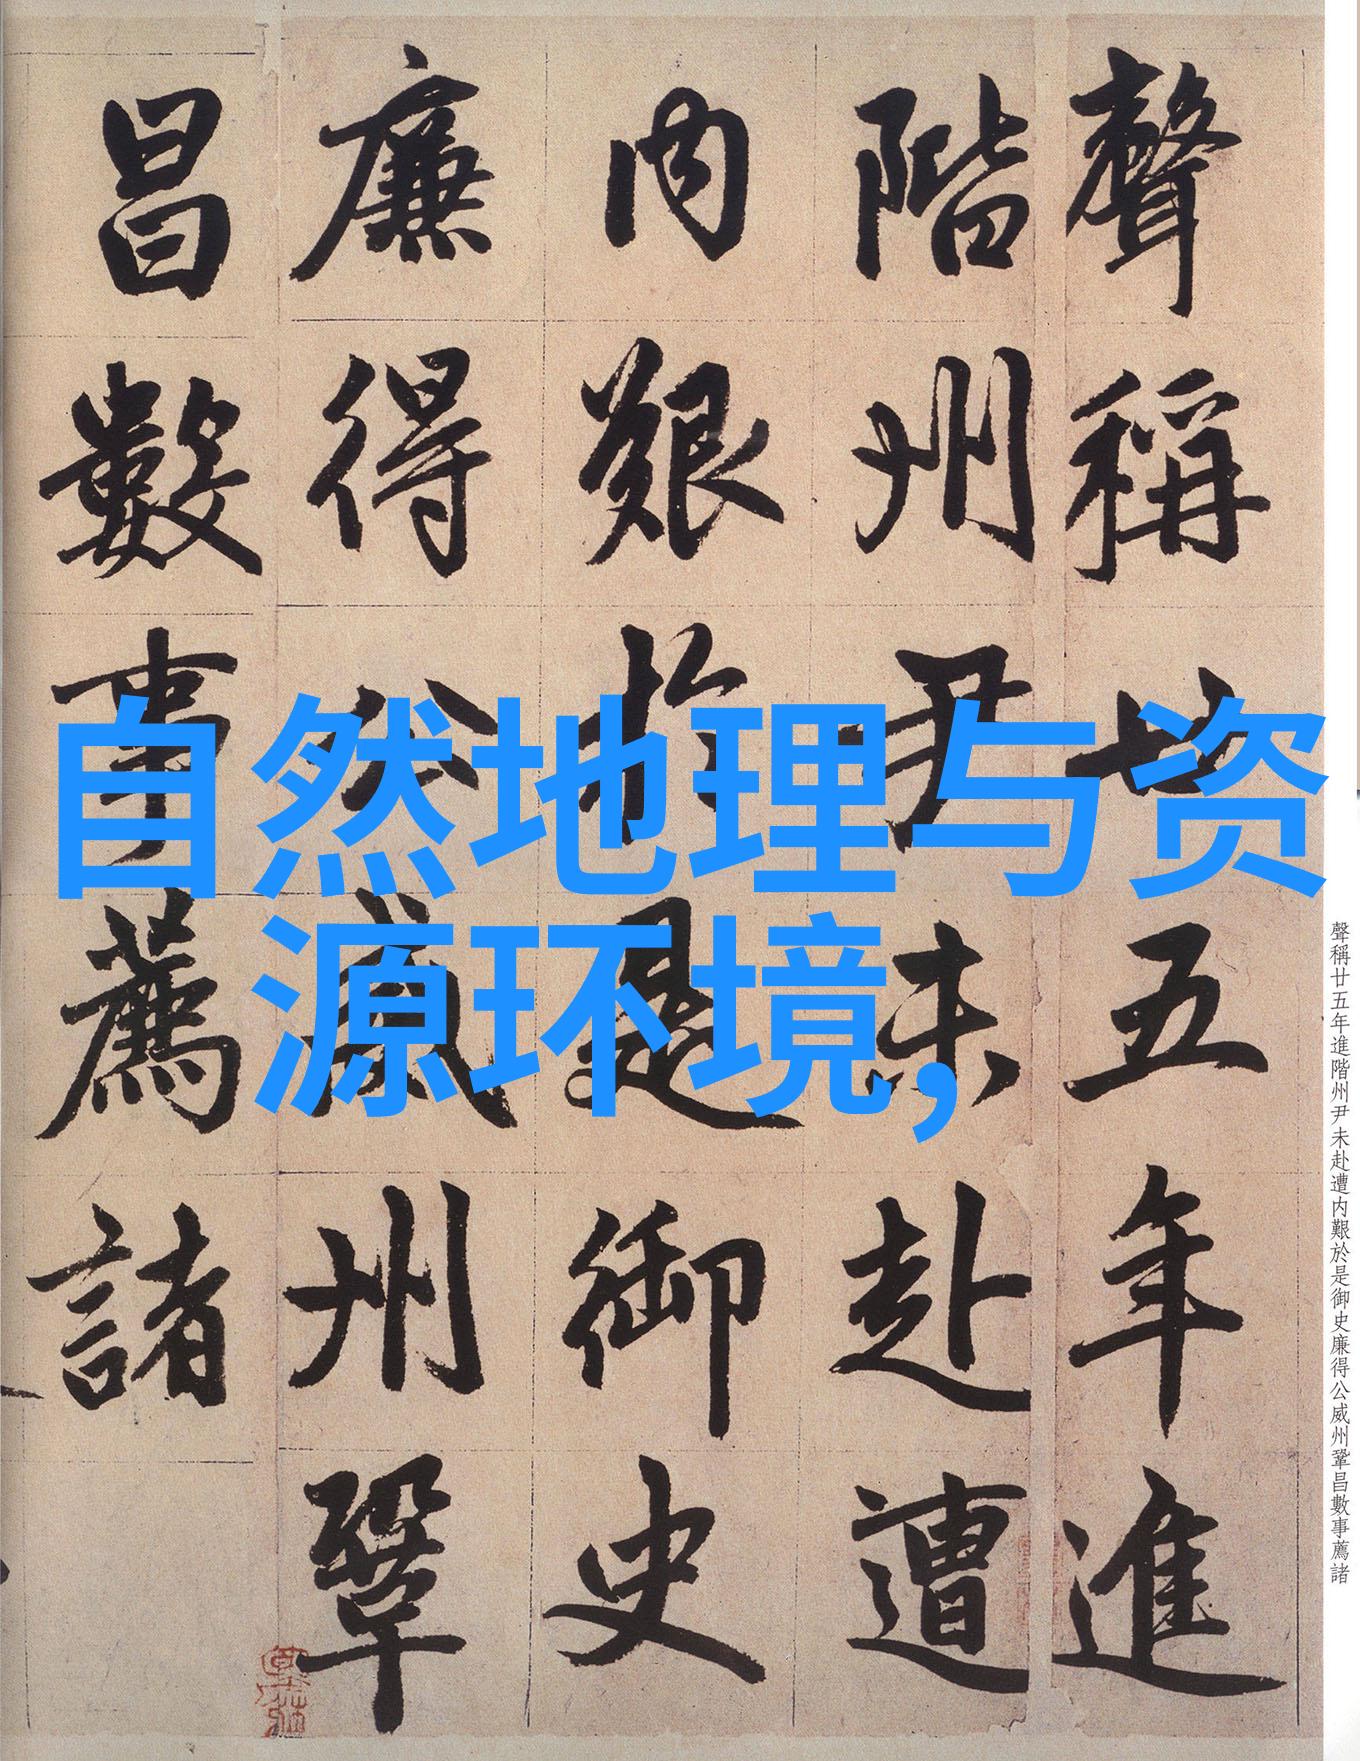 聲稱廿五年進
階州尹未赴遭
内艱於是御史
廉得公威州鞏
昌數事薦諸
自然地理与资
源环境,
聲稱廿五年進階州尹未赴遭内艱於是御史廉得公威州鞏昌數事薦諸